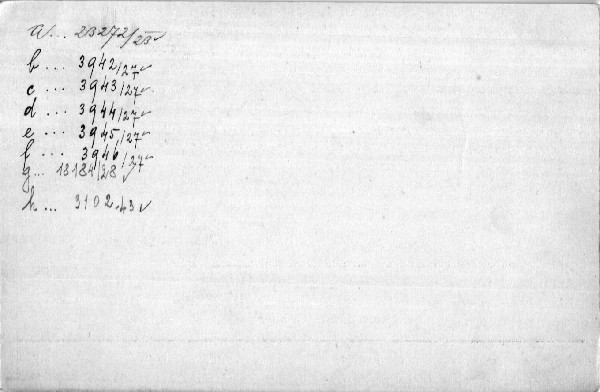 a... 23272/25 ✓
b... 3942/27 ✓
c... 3943/27 ✓
d... 3944/27 ✓
e... 3945/27 ✓
f... 3946/27 ✓
g... 13184/28 ✓
h... 3102.43 ✓